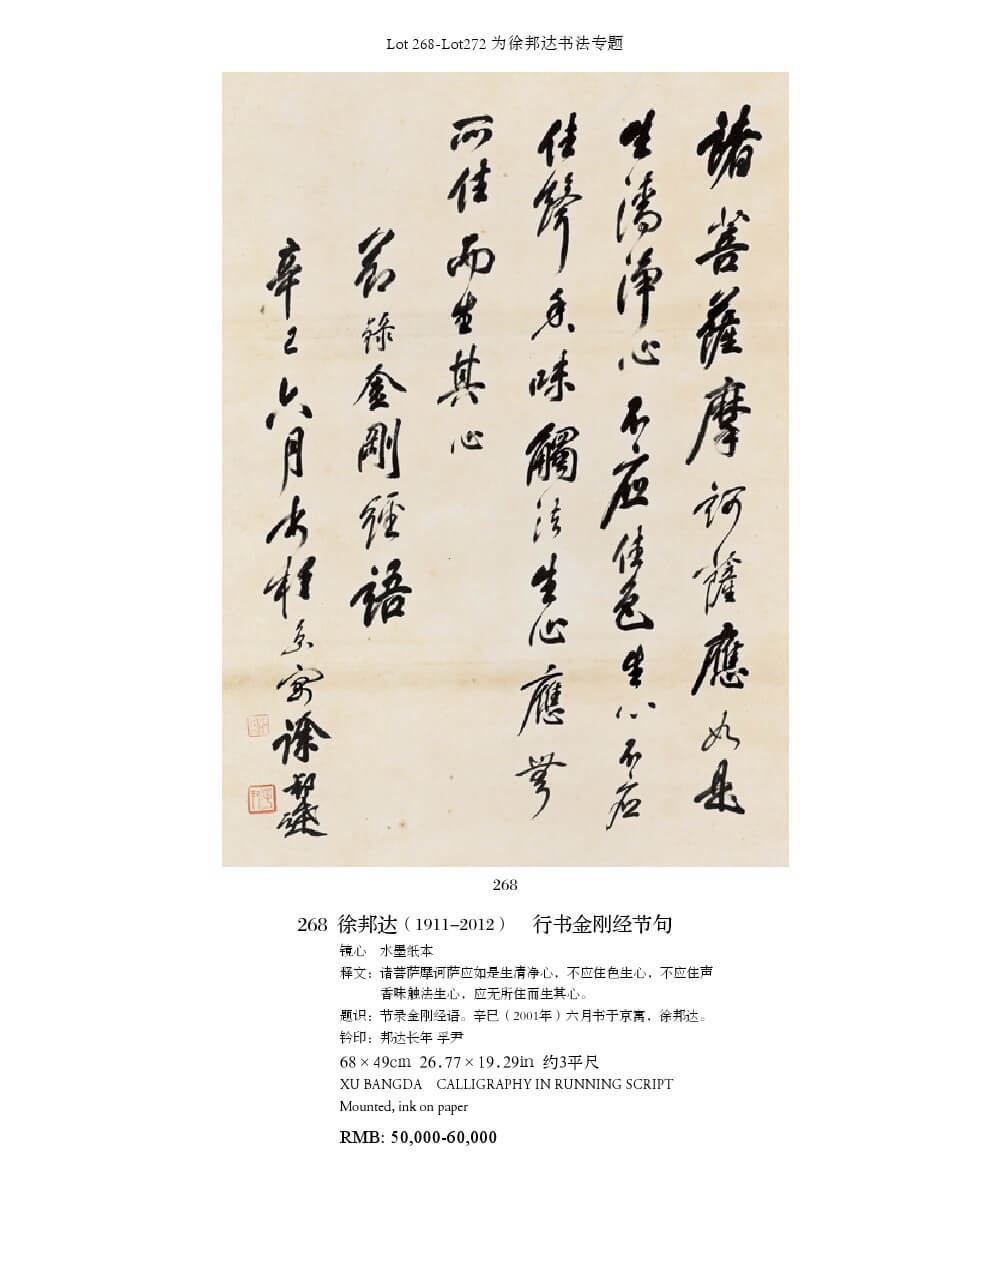 Lot 268-Lot272 为徐邦达书法专题
諸菩薩摩訶薩應如是
生清淨心不应住色生心不应
住聲香味觸法生心應無
所住而生其心
節錄金剛經語
辛巳六月书于京寓徐邦達
268
268 徐邦达（1911–2012） 行书金刚经节句
镜心 水墨纸本
释文：诸菩萨摩诃萨应如是生清净心，不应住色生心，不应住声
香味触法生心，应无所住而生其心。
题识：节录金刚经语。辛巳（2001年）六月书于京寓，徐邦达。
钤印：邦达长年 孚尹
68×49cm 26.77×19.29in 约3平尺
XU BANGDA CALLIGRAPHY IN RUNNING SCRIPT
Mounted, ink on paper
RMB: 50,000-60,000